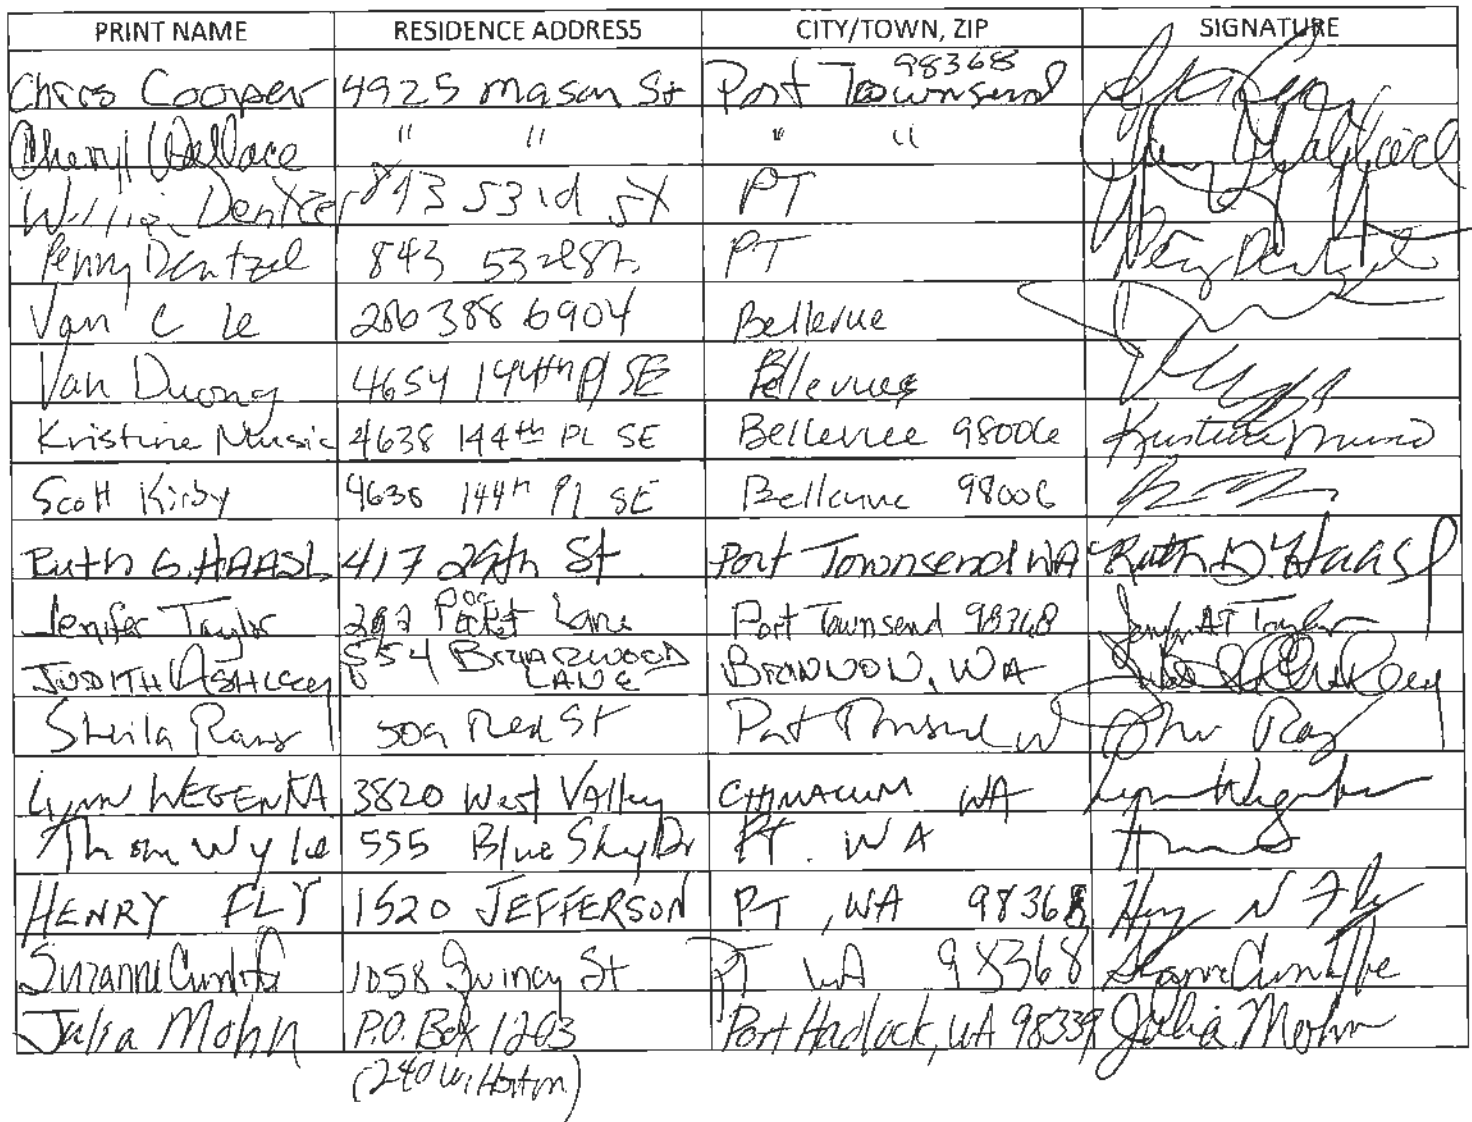 PRINT NAME RESIDENCE ADDRESS CITY/TOWN, ZIP SIGNATURE
Chris Cooper 4925 Mason St Port Townsend 98368
Cheryl Wallace " " " "
Dentzel 843 53rd St PT
Penny Dentzel 843 53rd St PT Penny Dentzel
Van C Le 206 388 6904 Bellevue
Van Duong 4654 144th Pl SE Bellevue
Kristine Music 4638 144th PL SE Bellevue 98006 Kristine Music
Scott Kirby 4638 144th Pl SE Bellevue 98006
Ruth G. HAASL 417 29th St Port Townsend WA Ruth G. Haasl
Jenifer Taylor 292 Pocket Lane Port Townsend 98368 Taylor
JUDITH ASHLEY 554 BRIARWOOD LANE BRINNON, WA
Sheila Ramsy 509 Reed St Port Townsend W
Lynn WEGENKA 3820 West Valley CHIMACUM WA
Thom Wylie 555 Blue Sky Dr PT. WA
HENRY FLY 1520 JEFFERSON PT, WA 98368 Henry N Fly
Suzanne Cunliffe 1058 Quincy St PT WA 98368 Suzanne Cunliffe
Julia Mohn P.O. Box 1203 Port Hadlock, WA 98339 Julia Mohn
(240 W.